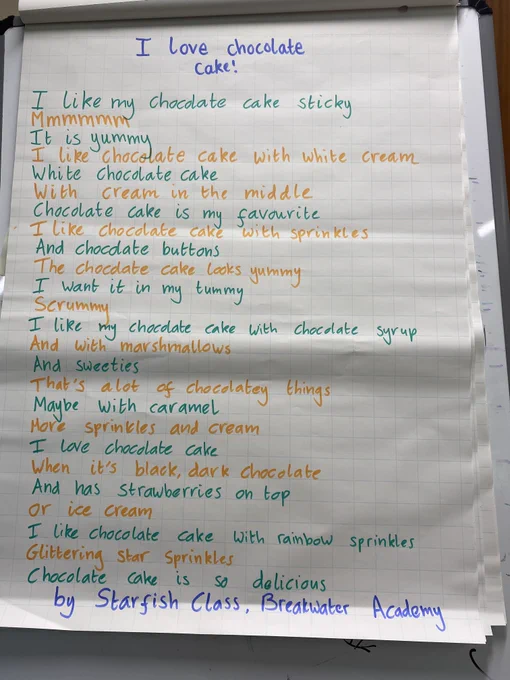 I love chocolate
cake!
I like my chocolate cake sticky
Mmmmmmm
It is yummy
I like chocolate cake with white cream
White chocolate cake
With cream in the middle
Chocolate cake is my favourite
I like chocolate cake with sprinkles
And chocolate buttons
The chocolate cake looks yummy
I want it in my tummy
Scrummy
I like my chocolate cake with chocolate syrup
And with marshmallows
And sweeties
That's alot of chocolatey things
Maybe with caramel
More sprinkles and cream
I love chocolate cake
When it's black, dark chocolate
And has strawberries on top
Or ice cream
I like chocolate cake with rainbow sprinkles
Glittering star sprinkles
Chocolate cake is so delicious
by Starfish Class, Breakwater Academy